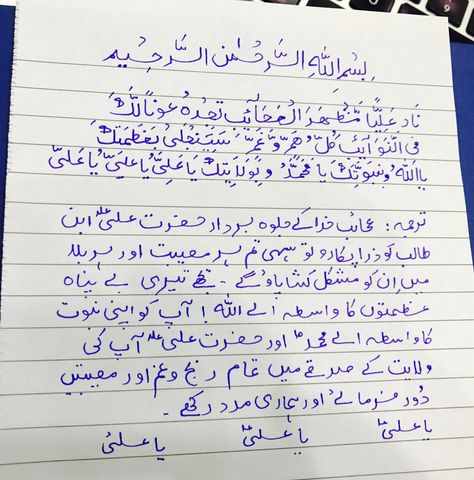 بِسْمِ اللهِ الرَّحْمٰنِ الرَّحِيْمِ
نَادِ عَلِيًّا مَّظْهَرَ الْعَجَآئِبِ تَجِدْهُ عَوْنًا لَّكَ
فِي النَّوَآئِبِ كُلُّ هَمٍّ وَّغَمٍّ سَيَنْجَلِيْ بِعَظَمَتِكَ
يَا اَللهُ وَبِنُبُوَّتِكَ يَا مُحَمَّدُ وَبِوَلَايَتِكَ يَا عَلِيُّ يَا عَلِيُّ يَا عَلِيُّ
ترجمہ: عجائب خدا کے جلوہ بردار حضرت علیؑ ابن
طالب کو ذرا پکارو تو سہی تم ہر مصیبت اور ہر بلا
میں ان کو مشکل کشا پاؤ گے۔ تجھے تیری بے پناہ
عظمتوں کا واسطہ اے اللہ! آپ کو اپنی نبوت
کا واسطہ اے محمدؐ اور حضرت علیؑ آپ کی
ولایت کے صدقے میں تمام رنج و غم اور مصیبتیں
دُور فرمائے اور ہماری مدد رکھے۔
یا علیؑ یا علیؑ یا علیؑ